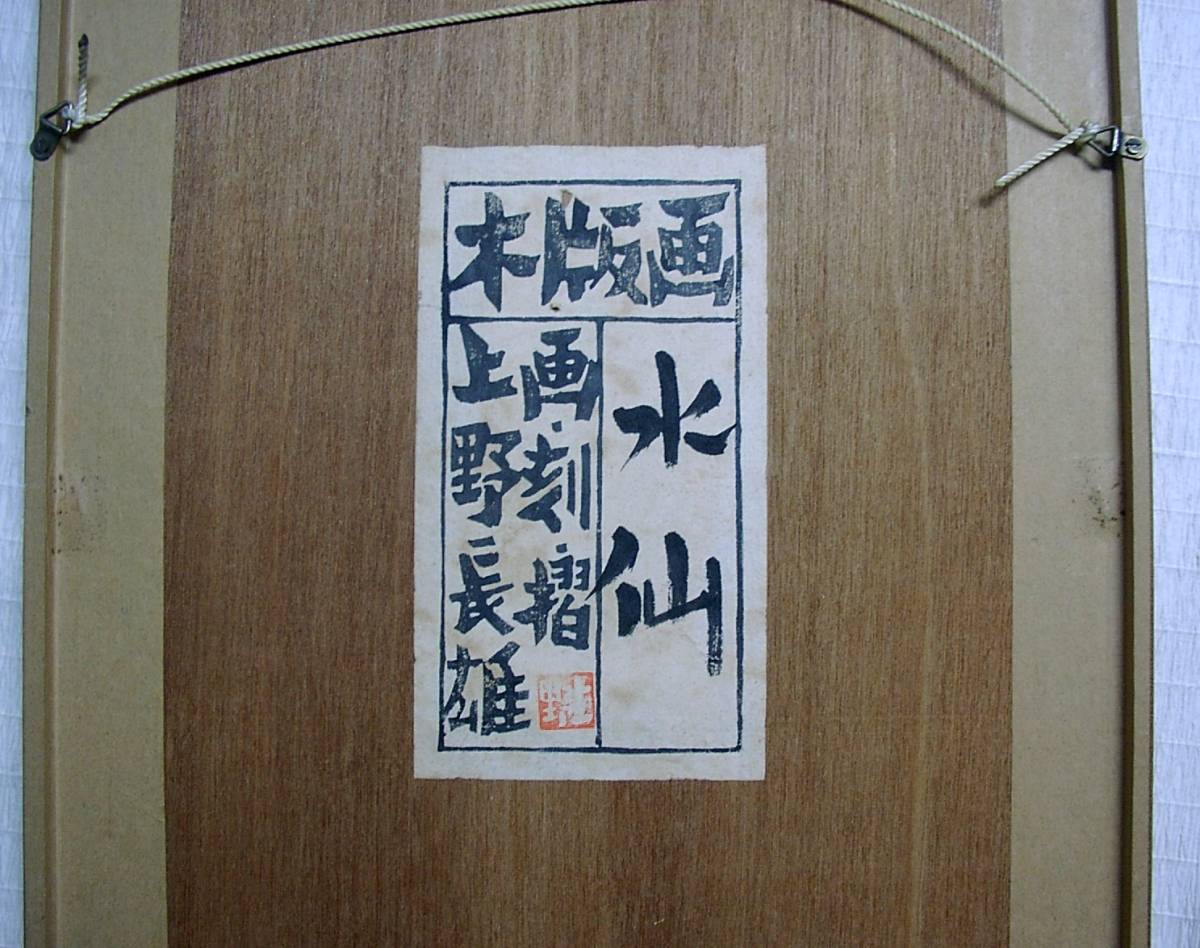 木版画
水仙
画・刻・摺
上野長雄